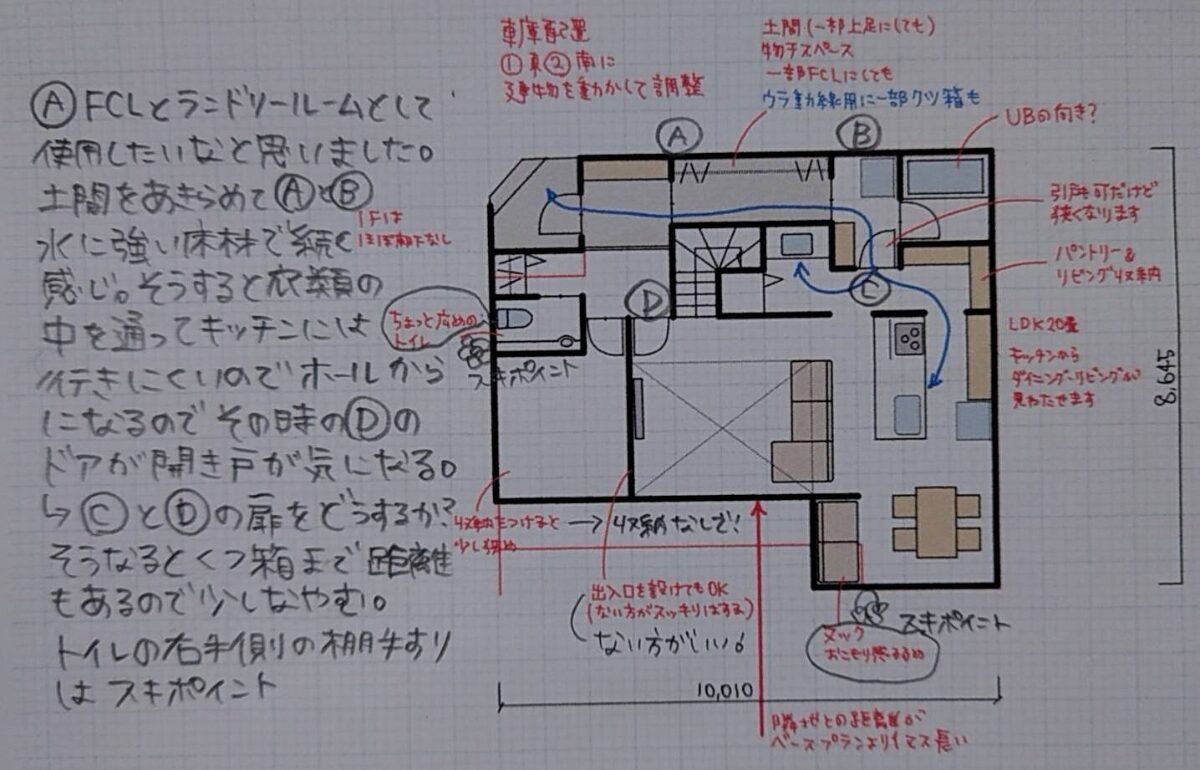 Ⓐ FCLとランドリールームとして
使用したいなと思いました。
土間をあきらめてⒶとⒷ
水に強い床材で続く
感じ。そうすると衣類の
中を通ってキッチンには
行きにくいのでホールから
になるのでその時のⒹの
ドアが開き戸が気になる。
↳ ⒸとⒹの扉をどうするか?
そうなるとくつ箱まで距離
もあるので少しなやむ。
トイレの右手側の棚手すり
はスキポイント
1Fは
ほぼ廊下なし
車庫配置
①東②南に
建物を動かして調整
土間(一部上足にしても)
物干スペース
一部FCLにしても
ウラ動線用に一部クツ箱も
UBの向き?
引戸も可だけど
狭くなります
パントリー&
リビング収納
LDK20畳
キッチンから
ダイニング・リビングが
見わたせます
Ⓐ
Ⓑ
Ⓒ
Ⓓ
ちょっと広めの
トイレ
スキポイント
収納をつけると
少し狭め
→ 収納なしで!
出入口を設けてもOK
(ない方がスッキリはする)
ない方がいい。
スキポイント
ヌック
おこもり感
10,010
8,645
隣地との距離が
ベースプランより1マス長い